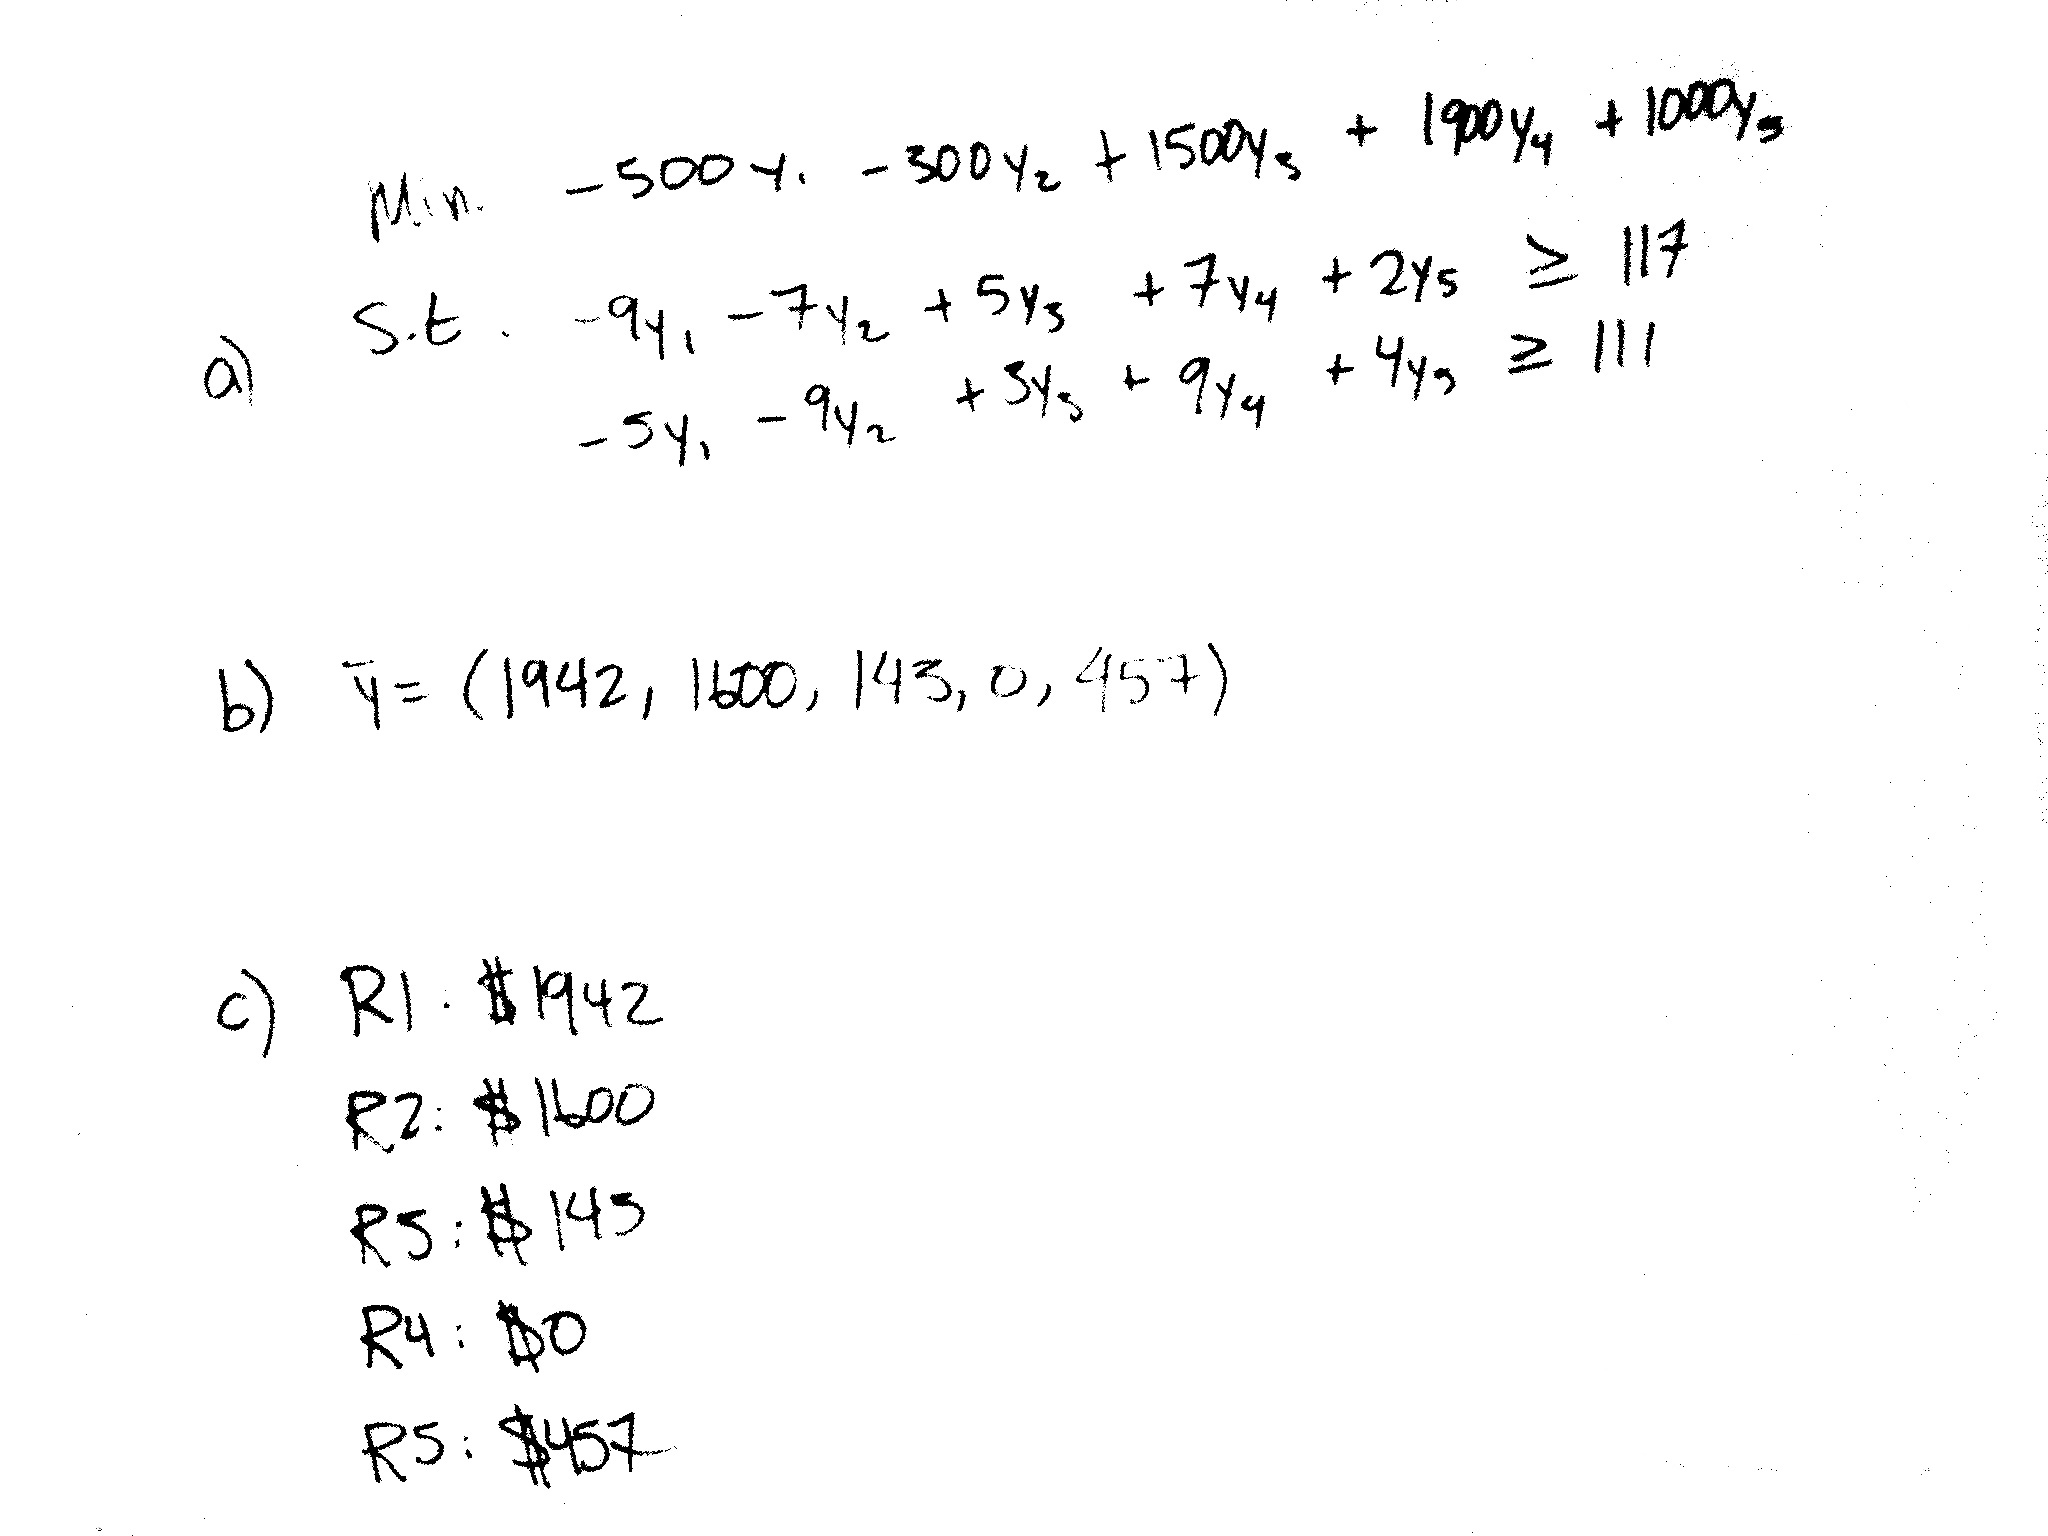 Min. -500y₁ - 300y₂ + 1500y₃ + 1900y₄ + 1000y₅
a) S.t. -9y₁ - 7y₂ + 5y₃ + 7y₄ + 2y₅ ≥ 117
-5y₁ - 9y₂ + 3y₃ + 9y₄ + 4y₅ ≥ 111
b) ȳ = (1942, 1600, 143, 0, 457)
c) R1: $1942
R2: $1600
R3: $143
R4: $0
R5: $457